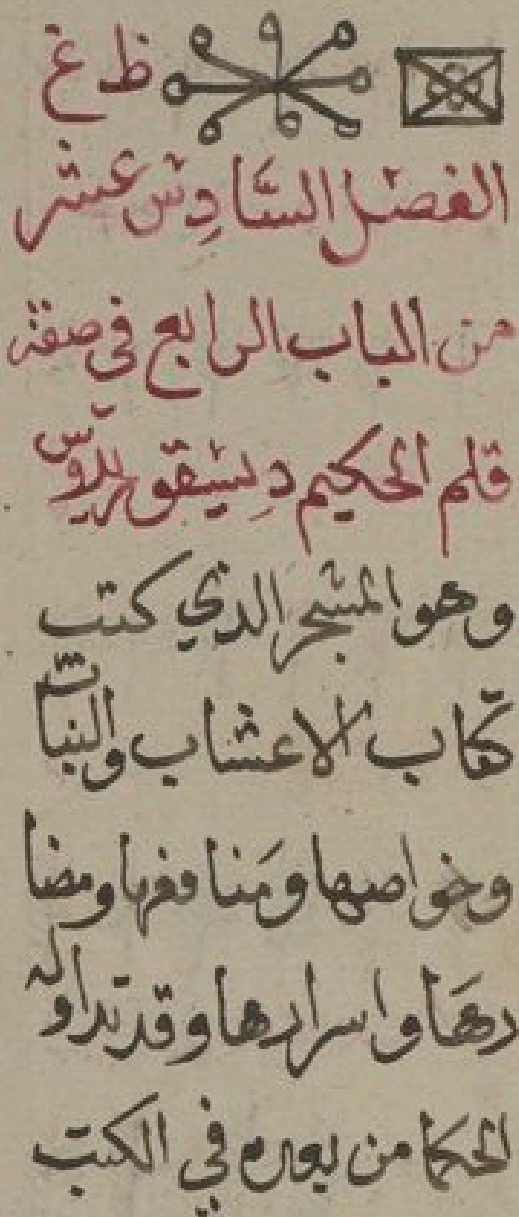 ظ غ
الفصل السَّادِس عشر
من الباب الرابع في صفة
قلم الحكيم دِيسْقوريدوس
وهو المشجر الذي كتب
كتاب الاعشاب والنباتْ
وخواصها ومَنافعها ومضا
رهَا واسرارها وقد تداوله
الحكما من بعده في الكتب